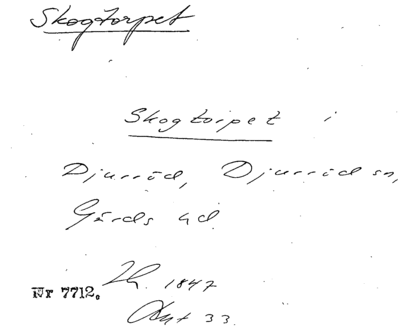 Skogtorpet
Skogtorpet i
Djurröd, Djurröd sn,
Gärds hd
Nr 7712. 1847
33.